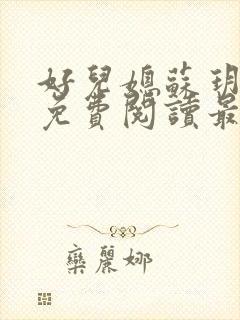 好兒媳蘇玥
免費閱讀最
欒麗娜